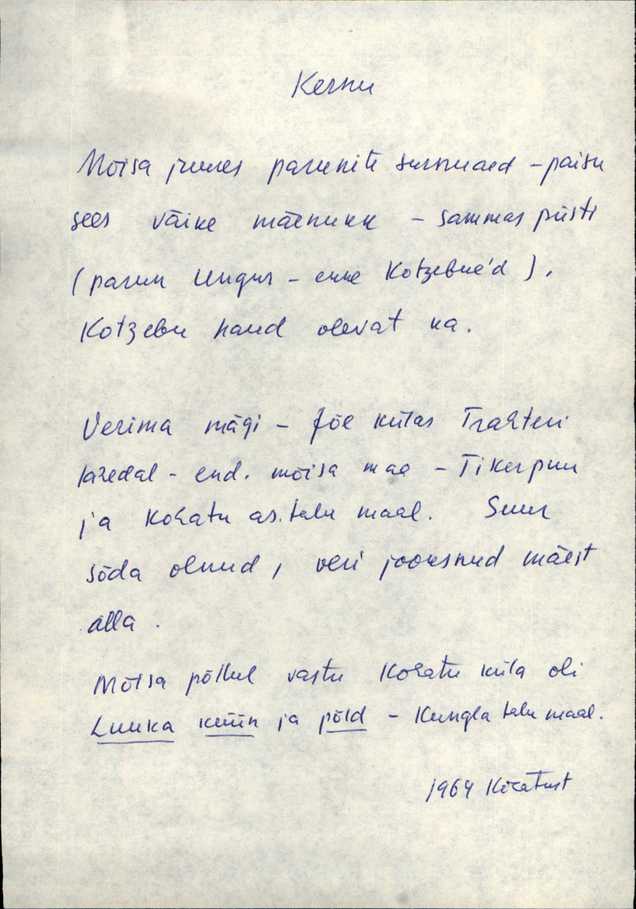 Kernu
Mõisa juures parunite surnuaed – paisu
sees väike mäenukk – sammas püsti
(parun Ungru – enne Kotzebue'd).
Kotzebu haud olevat ka.
Verima mägi – Jõe külas Trahteri
lähedal – end. mõisa maa – Tikerpuu
ja Kohatu as. talu maal. Suur
sõda olnud, veri jooksnud mäest
alla.
Mõisa põllul vastu Kohatu küla oli
Luuka küün ja põld – Kungla talu maal.
1964